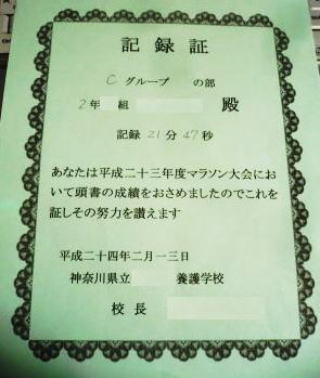 記録証
Cグループ の部
2年 組 殿
記録 21分47秒
あなたは平成二十三年度マラソン大会にお
いて頭書の成績をおさめましたのでこれを
証しその努力を讃えます
平成二十四年二月一三日
神奈川県立 養護学校
校長